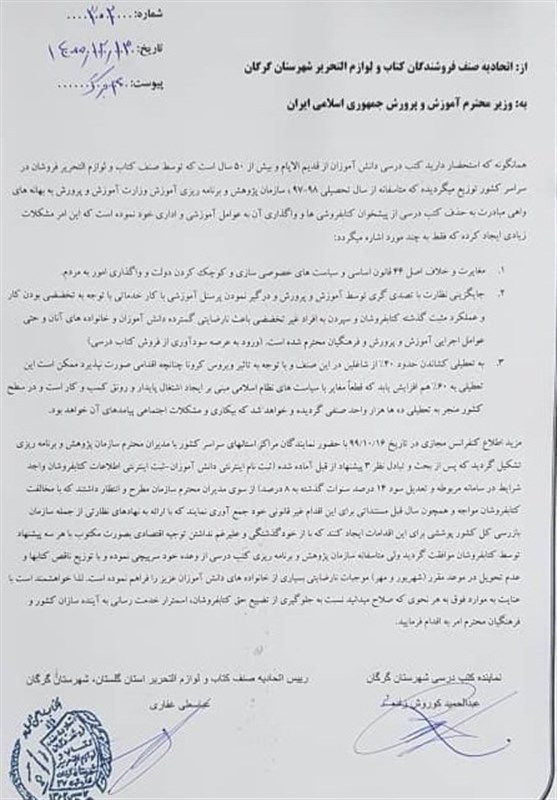 شماره: ۳۰۳۰۰۰
تاریخ: ۱۴۰۰/۱۲/۱۳
پیوست:
از: اتحادیه صنف فروشندگان کتاب و لوازم التحریر شهرستان گرگان
به: وزیر محترم آموزش و پرورش جمهوری اسلامی ایران
همانگونه که استحضار دارید کتب درسی دانش آموزان از قدیم الایام و بیش از ۵۰ سال است که توسط صنف کتاب و لوازم التحریر فروشان در
سراسر کشور توزیع میگردیده که متاسفانه از سال تحصیلی ۹۸-۹۷، سازمان پژوهش و برنامه ریزی آموزش وزارت آموزش و پرورش به بهانه های
واهی مبادرت به حذف کتب درسی از پیشخوان کتابفروشی ها و واگذاری آن به عوامل آموزشی و اداری خود نموده است که این امر مشکلات
زیادی ایجاد کرده که فقط به چند مورد اشاره میگردد:
۱. مغایرت و خلاف اصل ۴۴ قانون اساسی و سیاست های خصوصی سازی و کوچک کردن دولت و واگذاری امور به مردم.
۲. جایگزینی نظارت با تصدی گری توسط آموزش و پرورش و درگیر نمودن پرسنل آموزشی با کار خدماتی با توجه به تخصصی بودن کار
و عملکرد مثبت گذشته کتابفروشان و سپردن به افراد غیر تخصصی باعث نارضایتی گسترده دانش آموزان و خانواده های آنان و حتی
عوامل اجرایی آموزش و پرورش و فرهنگیان محترم شده است. (ورود به عرصه سودآوری از فروش کتاب درسی)
۳. به تعطیلی کشاندن حدود ۴۰٪ از شاغلین در این صنف و با توجه به تاثیر ویروس کرونا چنانچه اقدامی صورت نپذیرد ممکن است این
تعطیلی به ۶۰٪ هم افزایش یابد که قطعاً مغایر با سیاست های نظام اسلامی مبنی بر ایجاد اشتغال پایدار و رونق کسب و کار است و در سطح
کشور منجر به تعطیلی ده ها هزار واحد صنفی گردیده و خواهد شد که بیکاری و مشکلات اجتماعی پیامدهای آن خواهد بود.
مزید اطلاع کنفرانس مجازی در تاریخ ۹۹/۱۰/۱۶ با حضور نمایندگان مراکز استانهای سراسر کشور با مدیران محترم سازمان پژوهش و برنامه ریزی
تشکیل گردید که پس از بحث و تبادل نظر ۳ پیشنهاد از قبل آماده شده (ثبت نام اینترنتی دانش آموزان-ثبت اینترنتی اطلاعات کتابفروشان واجد
شرایط در سامانه مربوطه و تعدیل سود ۱۴ درصد سنوات گذشته به ۸ درصد) از سوی مدیران محترم سازمان مطرح و انتظار داشتند که با مخالفت
کتابفروشان مواجه و همچون سال قبل مستنداتی برای این اقدام غیر قانونی خود جمع آوری نمایند که با ارائه به نهادهای نظارتی از جمله سازمان
بازرسی کل کشور پوششی برای این اقدامات ایجاد کنند که با از خودگذشتگی و علیرغم نداشتن توجیه اقتصادی بصورت مکتوب با هر سه پیشنهاد
توسط کتابفروشان موافقت گردید ولی متاسفانه سازمان پژوهش و برنامه ریزی کتب درسی از وعده خود سرپیچی نموده و با توزیع ناقص کتابها و
عدم تحویل در موعد مقرر (شهریور و مهر) موجبات نارضایتی بسیاری از خانواده های دانش آموزان عزیز را فراهم نموده است. لذا خواهشمند است با
عنایت به موارد فوق به هر نحوی که صلاح میدانید نسبت به جلوگیری از تضییع حق کتابفروشان، استمرار خدمت رسانی به آینده سازان کشور و
فرهنگیان محترم امر به اقدام فرمایید.
نماینده کتب درسی شهرستان گرگان
عبدالحمید کوروش
رییس اتحادیه صنف کتاب و لوازم التحریر استان گلستان، شهرستان گرگان
عباسعلی غفاری